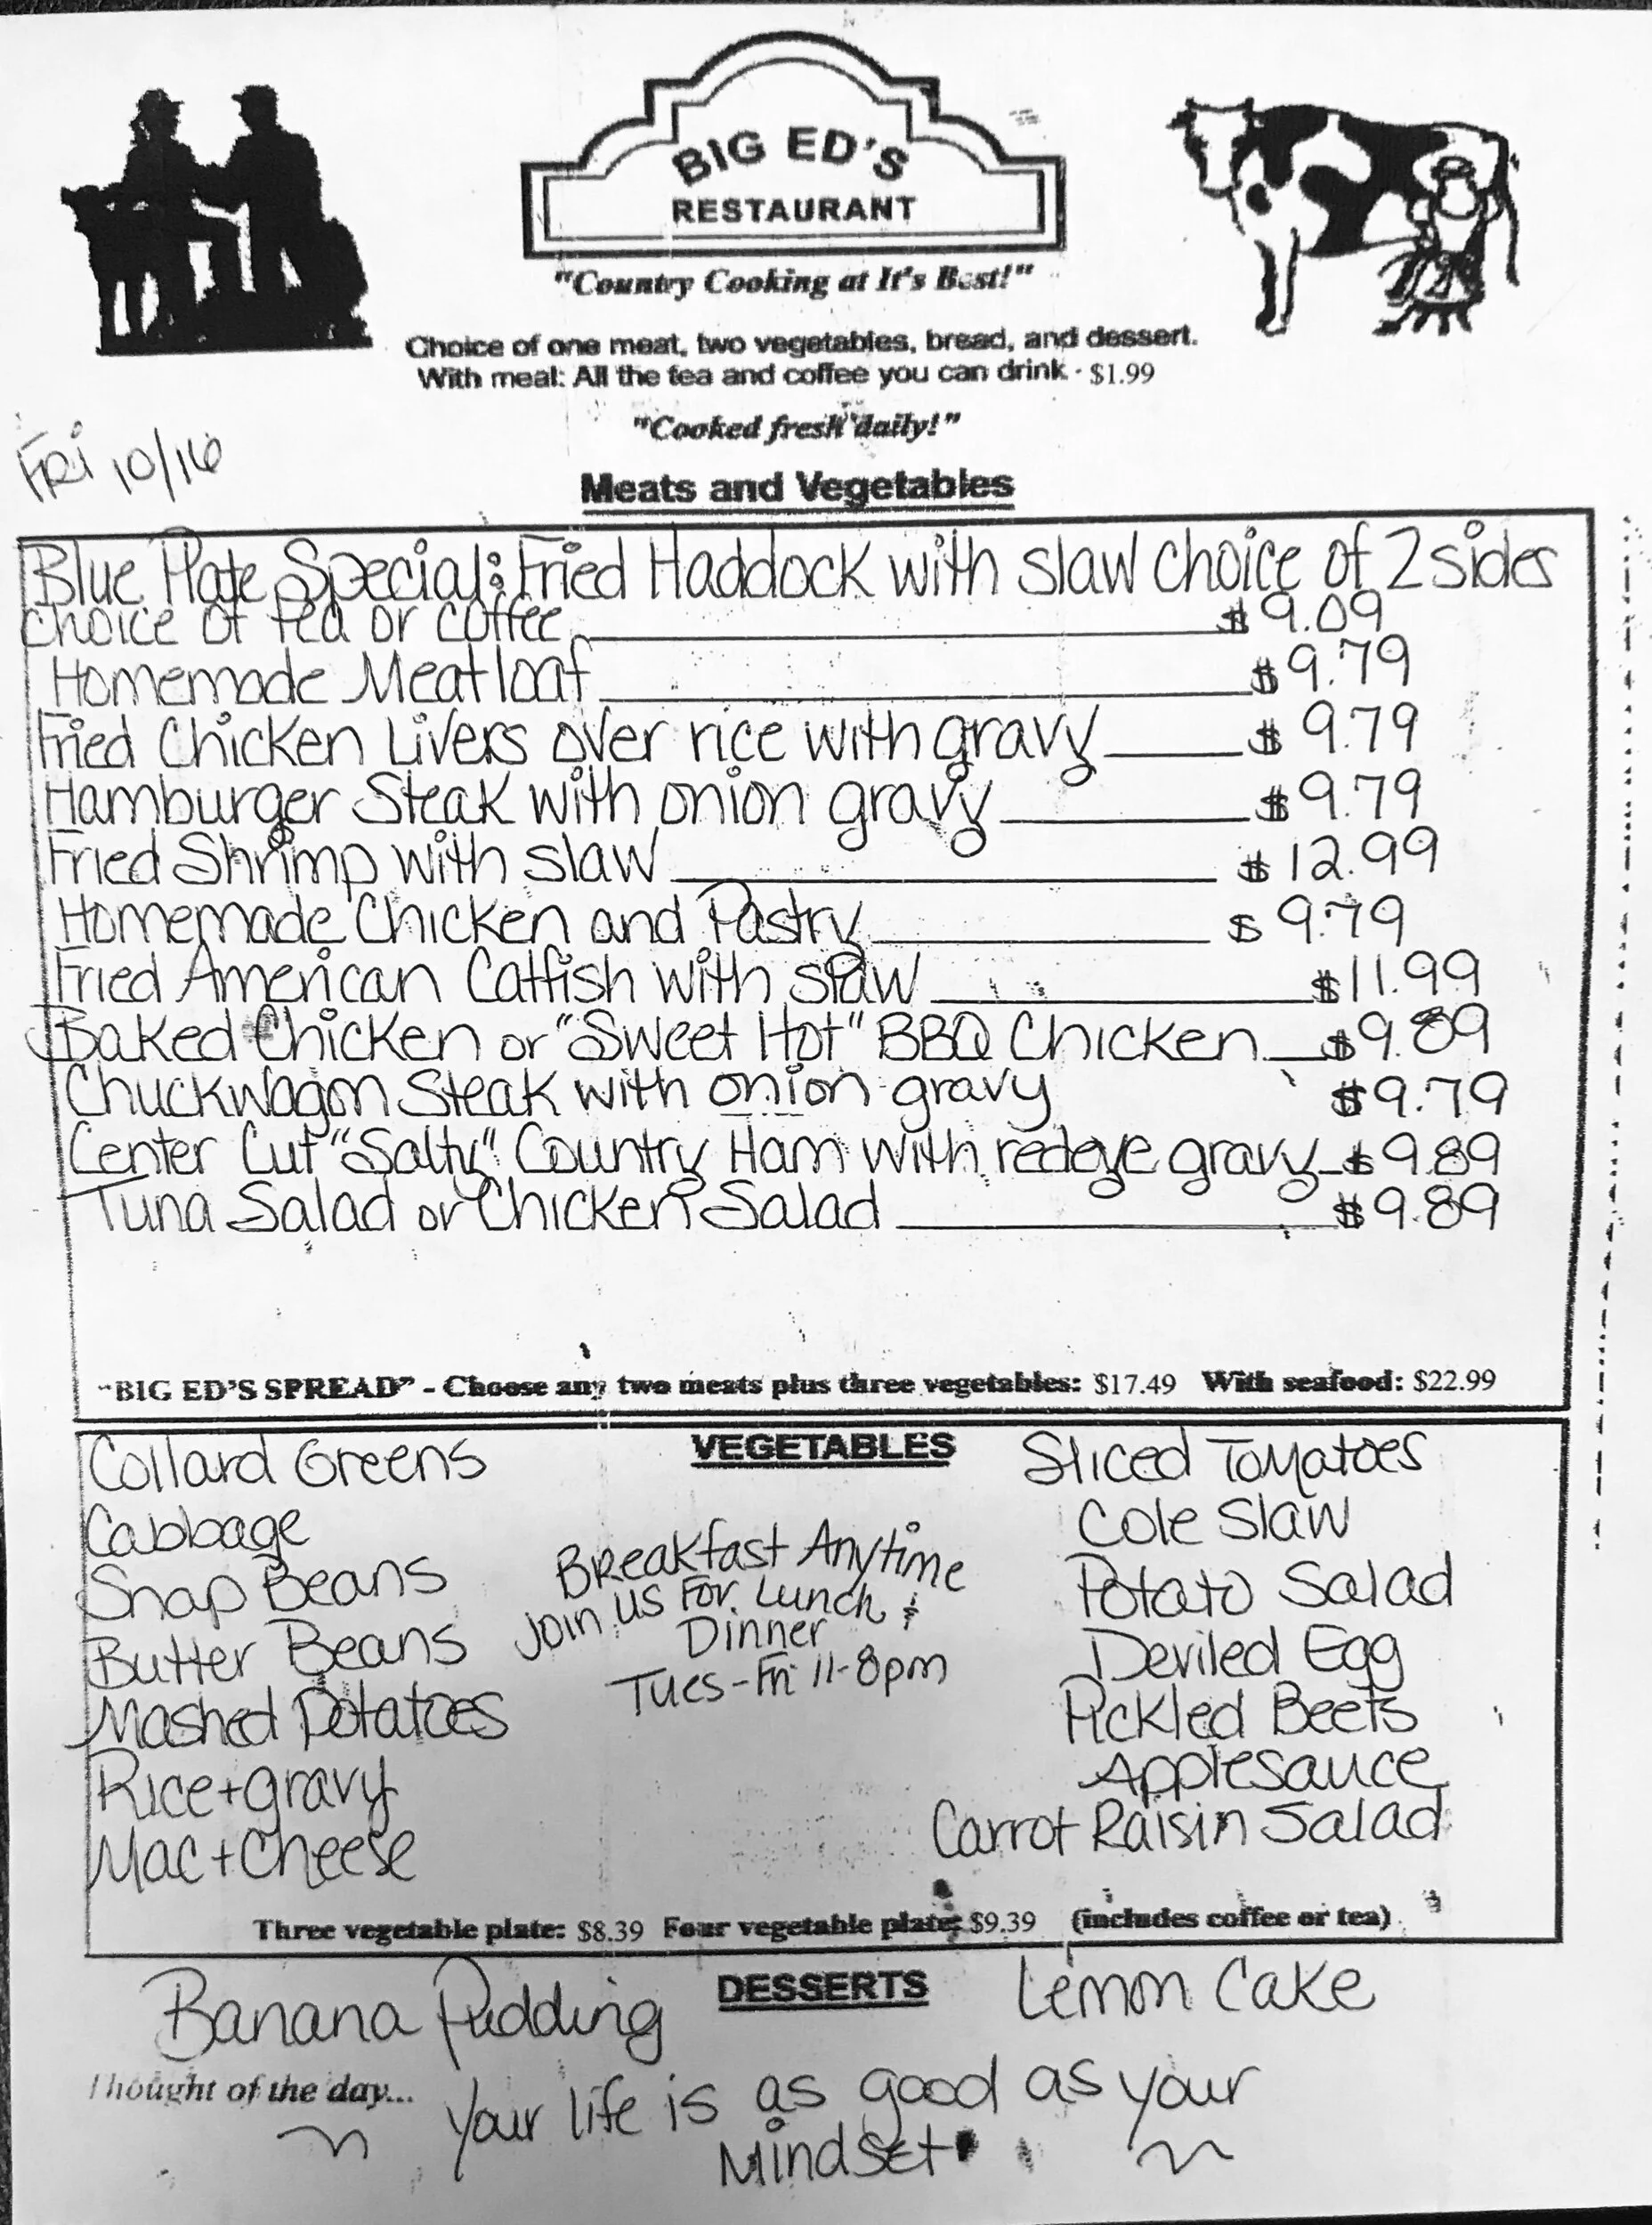 BIG ED'S
RESTAURANT
"Country Cooking at It's Best!"
Choice of one meat, two vegetables, bread, and dessert.
With meal: All the tea and coffee you can drink - $1.99
"Cooked fresh daily!"
FRi 10/16
Meats and Vegetables
Blue Plate Special: Fried Haddock with slaw choice of 2 sides
choice of tea or coffee $9.09
Homemade Meatloaf $9.79
Fried Chicken Livers over rice with gravy $9.79
Hamburger Steak with onion gravy $9.79
Fried Shrimp with slaw $12.99
Homemade Chicken and Pastry $9.79
Fried American Catfish with slaw $11.99
Baked Chicken or "Sweet Hot" BBQ Chicken $9.89
Chuckwagon Steak with onion gravy $9.79
Center Cut "Salty" Country Ham with redeye gravy $9.89
Tuna Salad or Chicken Salad $9.89
"BIG ED'S SPREAD" - Choose any two meats plus three vegetables: $17.49 With seafood: $22.99
VEGETABLES
Collard Greens
Cabbage
Snap Beans
Butter Beans
Mashed Potatoes
Rice + gravy
Mac + Cheese
Breakfast Anytime
Join us For Lunch &
Dinner
Tues-Fri 11-8pm
Sliced Tomatoes
Cole Slaw
Potato Salad
Deviled Egg
Pickled Beets
Applesauce
Carrot Raisin Salad
Three vegetable plate: $8.39 Four vegetable plate: $9.39 (includes coffee or tea)
DESSERTS
Banana Pudding
Lemon Cake
Thought of the day...
Your life is as good as your
Mindset.